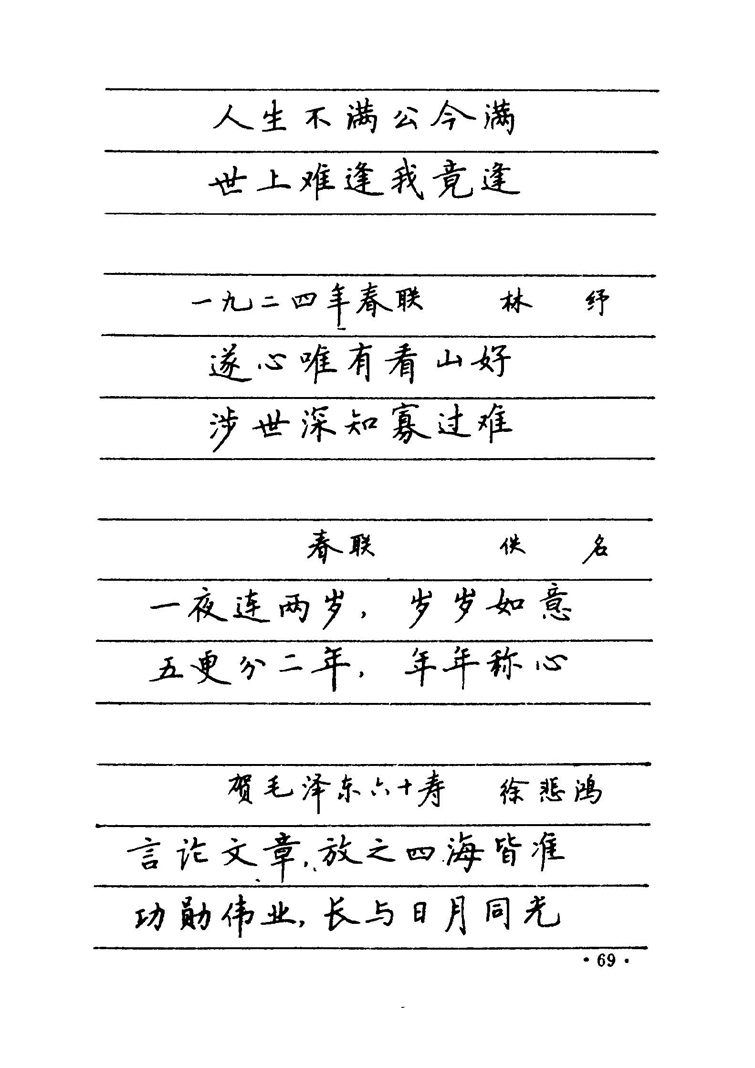 人生不满公今满
世上难逢我竟逢
一九二四年春联 林纾
遂心唯有看山好
涉世深知寡过难
春联 佚名
一夜连两岁，岁岁如意
五更分二年，年年称心
贺毛泽东六十寿 徐悲鸿
言论文章，放之四海皆准
功勋伟业，长与日月同光
·69·